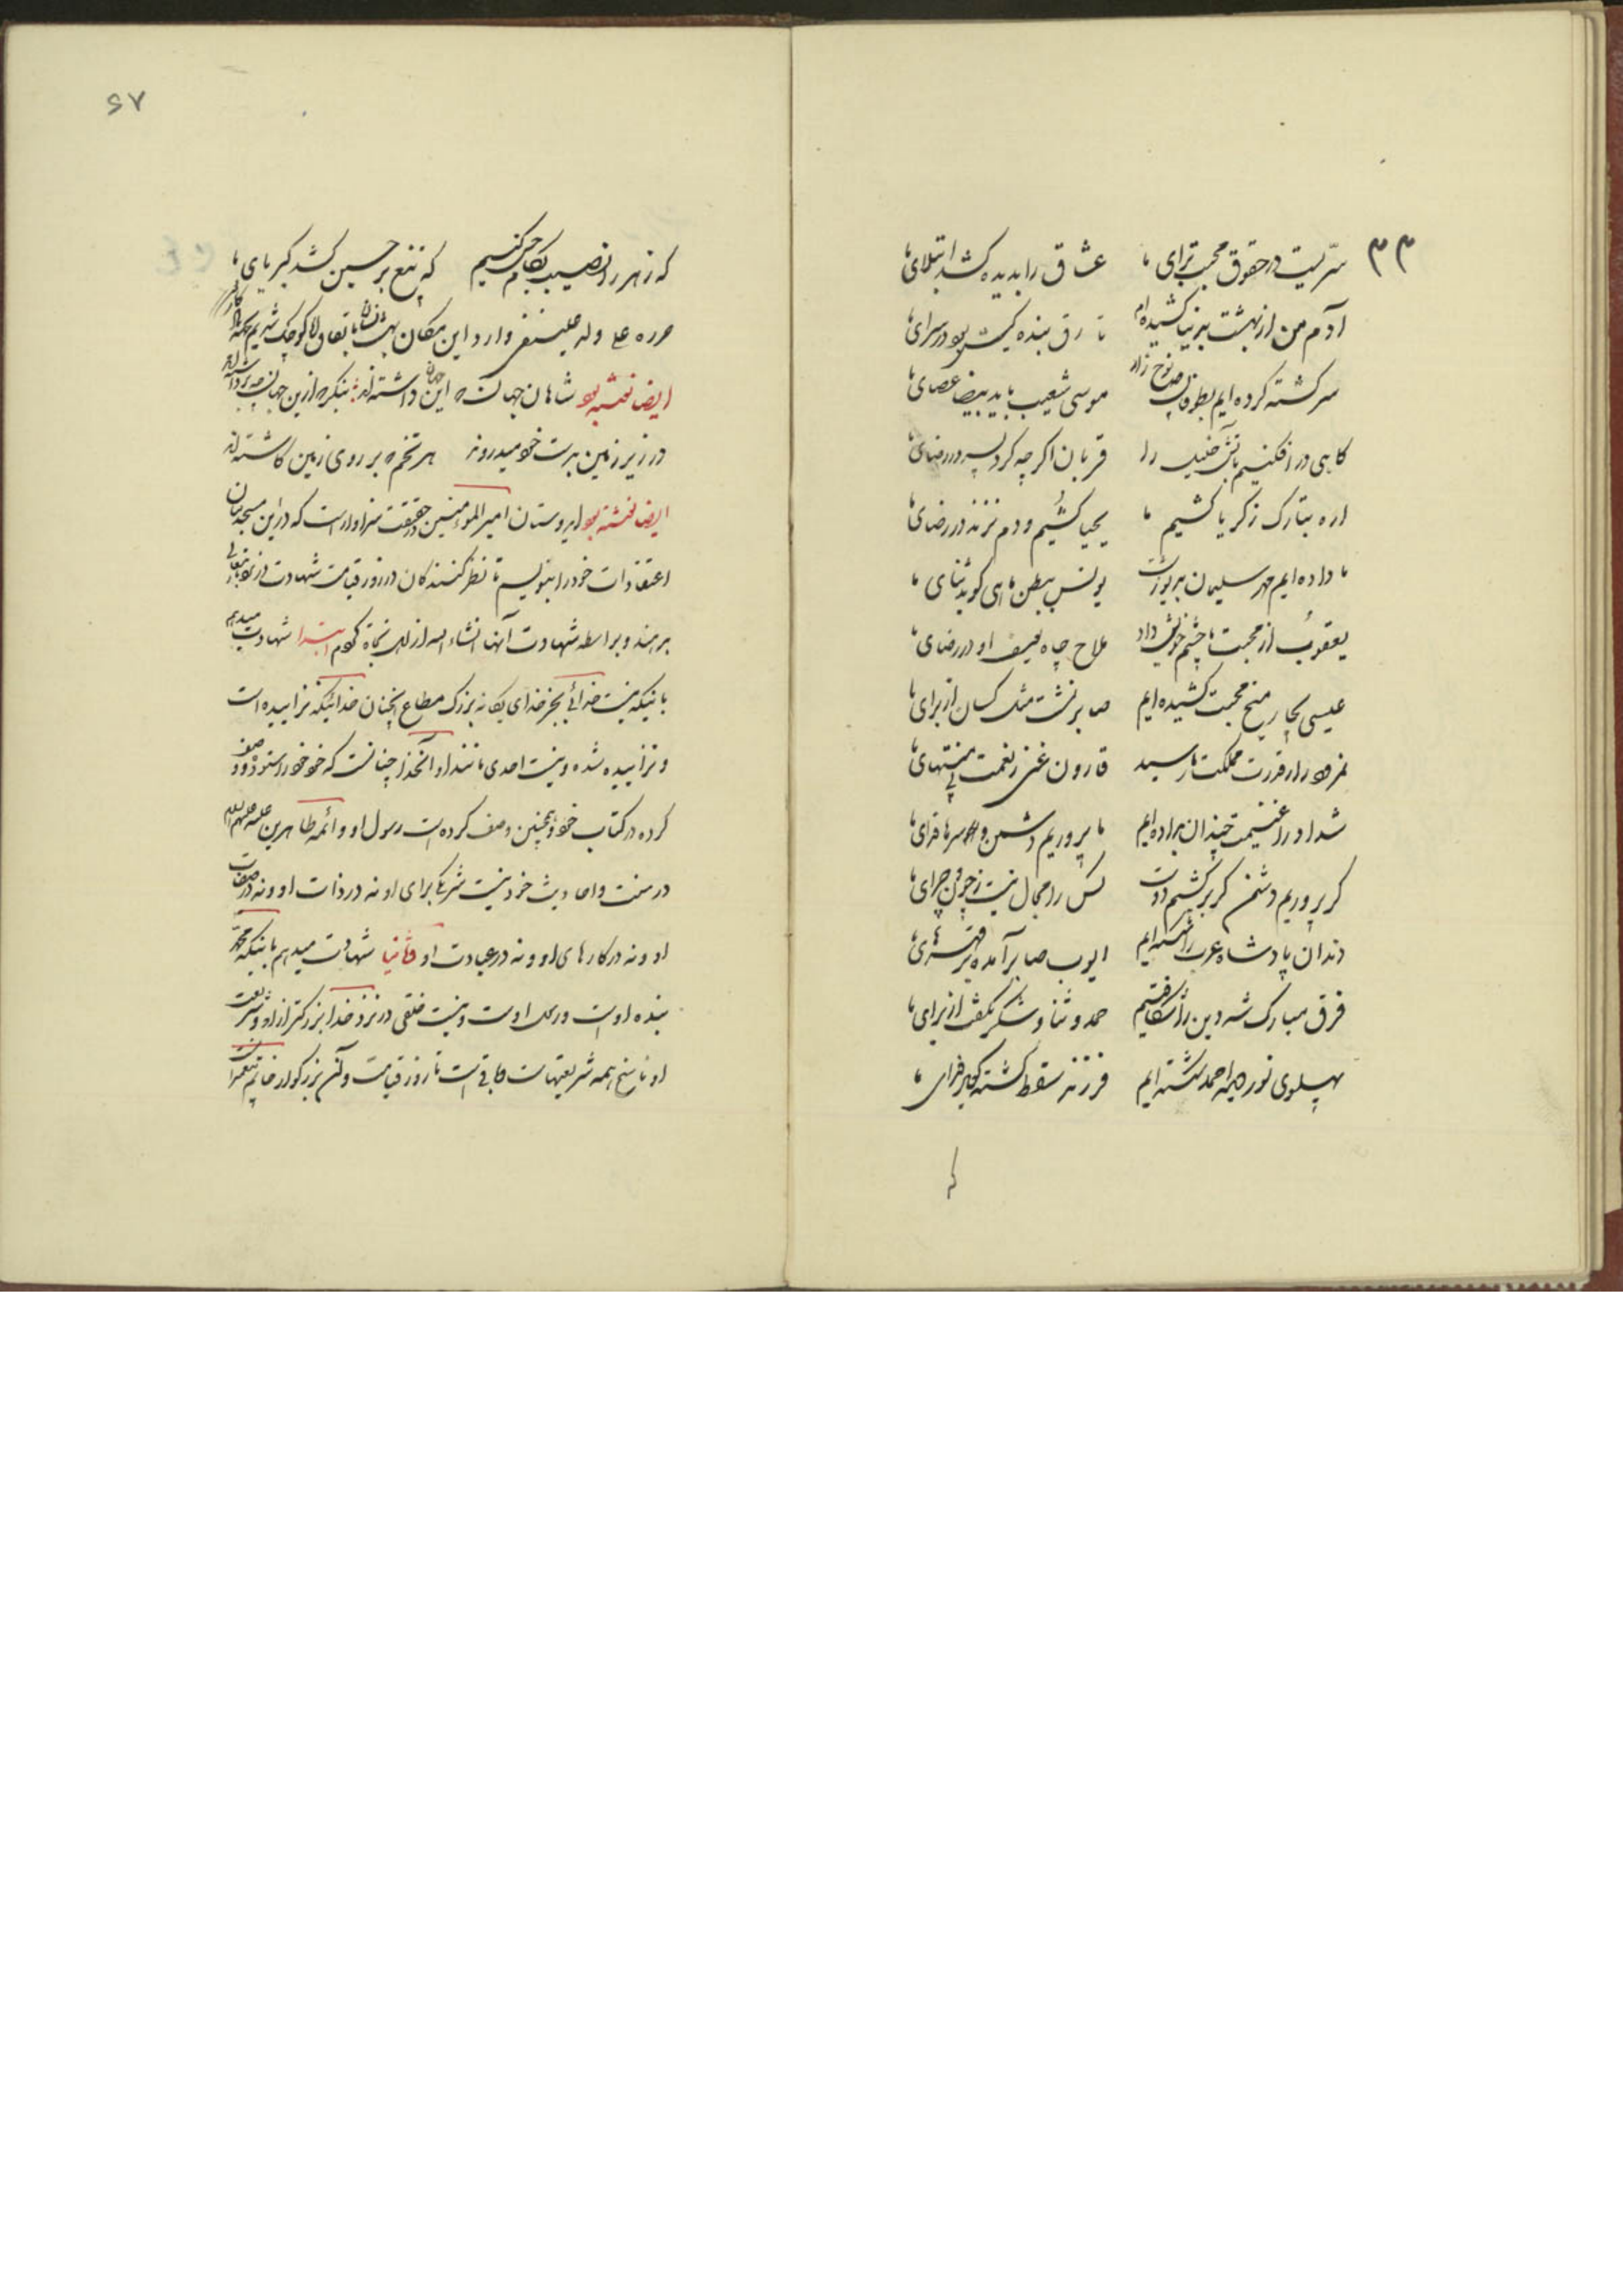 ۳۳
سریست در حقوق محبت برای ما عشاق را بدیده کشد ابتلای ما
آدم من از بهشت بدنیا کشیده‌ام تا رق بنده کیست بود در سرای ما
سرگشته کرده‌ایم بطوفان نوح زار موسی شعیب باید بیضا عصای ما
گاهی در افکنیم بآتش خلیل را قربان اگر چه کرد پسر در رضای ما
اره بتارک زکریا کشیم ما یحیا کشیم و دم نزند در رضای ما
ما داده‌ایم مهر سلیمان بدیو زشت یونس ببطن ماهی گوید ثنای ما
یعقوب از محبت ما چشم خویش داد ملاح چاه یوسف او در رضای ما
عیسی بچار میخ محبت کشیده‌ایم صابر نشست مثل کسان از برای ما
نمرود را ز قدرت ما مملکت رسید قارون غنی ز نعمت بی منتهای ما
شداد را غنیمت چندان بداده‌ایم ما پروریم دشمن و سر ما فدای ما
گر پروریم دشمن گر بر کشیم دوست کس را مجال نیست ز چون و چرای ما
دندان پادشاه عرب را شکسته‌ایم ایوب صابر آمده
فرق مبارک شه دین را شکافتیم حمد و ثنا و شکر بگفت از برای ما
پهلوی نور دیده احمد شکسته‌ایم فرزند سقط گشته
که
۶۷
که زهر را نصیب بکام حسن کنیم که تیغ بر حسین کشد کبریای ما
حرره علی وله علینقی وارد این مکان بهشت نشان باتفاق لالا کوچک شدیم
ایضا نوشته بود شاهان جهان که این جهان داشته‌اند بنگر که ازین جهان چه برداشته‌اند
در زیر زمین بدست خود میدروند هر تخم که بر روی زمین کاشته‌اند
ایضا نوشته بود ای دوستان امیر المؤمنین در حقیقت سزاوار است که در این مسجد بیان
اعتقادات خود را بنویسم تا نظر کنندگان در روز قیامت شهادت در نزد خدا
بدهند و بواسطه شهادت آنها انشاء الله از اهل نجاة گردم ابتدا شهادت میدهم
باینکه نیست خدائی بجز خدای یگانه بزرگ مطاع آنچنان خدائیکه نزائیده است
و نزائیده شده و نیست احدی مانند او آنخدا چنانست که خود خود را ستوده و وصف
کرده در کتاب خود و همچنین وصف کرده است رسول او و ائمه طاهرین علیه و علیهم السلام
در سنت و احادیث خود نیست شریکی برای او نه در ذات او و نه در صفات
او و نه در کارهای او و نه در عبادت او و ثانیا شهادت میدهم باینکه محمد
بنده اوست و رسول اوست و نیست خلقی در نزد خدا بزرگتر از او و شریعت
او ناسخ همه شریعتهاست و باقی است تا روز قیامت و آن بزرگوار خاتم پیغمبران